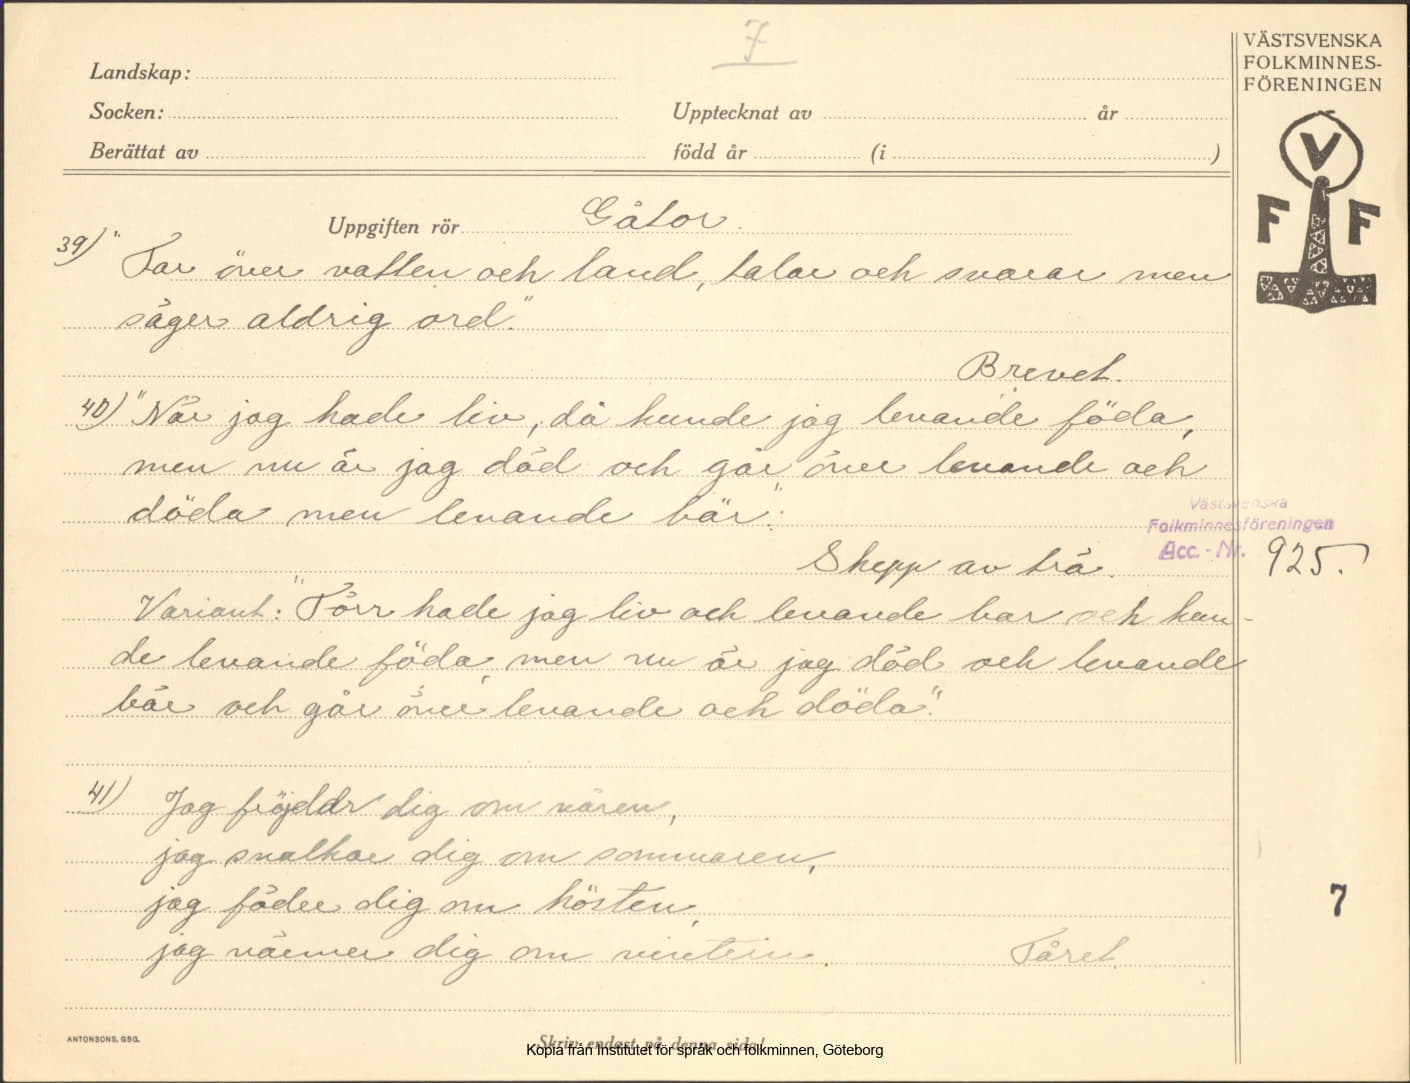 7
VÄSTSVENSKA
FOLKMINNES-
FÖRENINGEN
Landskap:
Socken: Upptecknat av år
Berättat av född år (i )
V
F F
Uppgiften rör Gåtor.
39) "Far över vatten och land, talar och svarar men
säger aldrig ord."
Brevet.
40) "När jag hade liv, då kunde jag levande föda,
men nu är jag död och går över levande och
döda men levande bär".
Västsvenska
Folkminnesföreningen
Acc. - Nr. 925.
Skepp av trä.
Variant: "Förr hade jag liv och levande bar och kun-
de levande föda, men nu är jag död och levande
bär och går över levande och döda".
41) Jag fröjdar dig om våren,
jag svalkar dig om sommaren,
jag föder dig om hösten,
jag värmer dig om vintern. Fåret.
7
ANTONSONS, GBG.
Skriv endast på denna sida!
Kopia från Institutet för språk och folkminnen, Göteborg